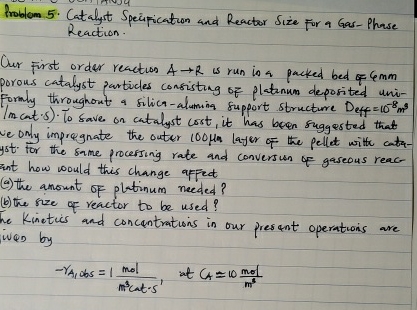 Problem 5. Catalyst Specification and Reactor Size For a Gas-Phase
Reaction.
Our First order reaction A → R is run in a packed bed of 6mm
porous catalyst particles consisting of platinum deposited uni-
Formly throughout a silica-alumina support structure Deff = 10⁻⁸ m³
/m cat·s). To save on catalyst cost, it has been suggested that
we only impregnate the outer 100μm layer of the pellet with cata-
yst for the same processing rate and conversion of gaseous reac-
ant how would this change affect
(a) the amount of platinum needed?
(b) the size of reactor to be used?
he kinetics and concentrations in our present operations are
iven by
-rA,obs = 1 mol/m³cat·s, at CA = 10 mol/m³